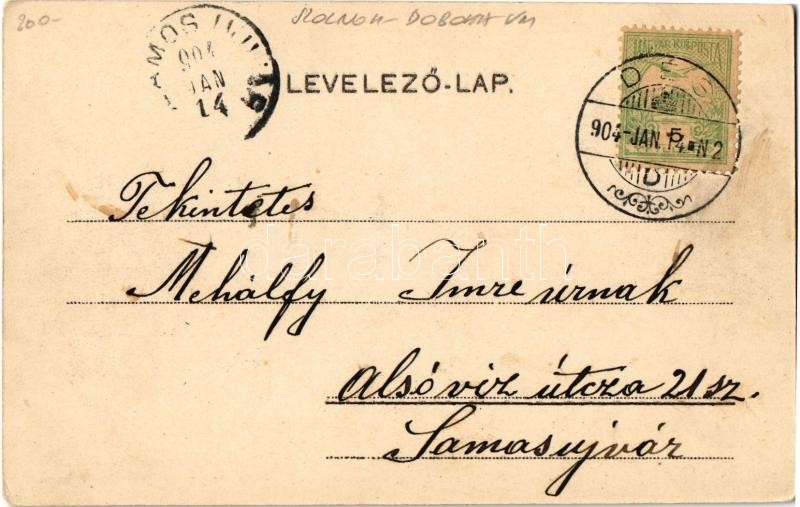 200-
SZOLNOK-DOBOKA VM
904
JAN
14
LEVELEZŐ-LAP.
MAGYAR KIR. POSTA
DÉS
904-JAN.14-N2
5
D
Tekintetes
Mehálfy Imre úrnak
Alsóviz útcza 21 sz.
Samasujvár
darabanth